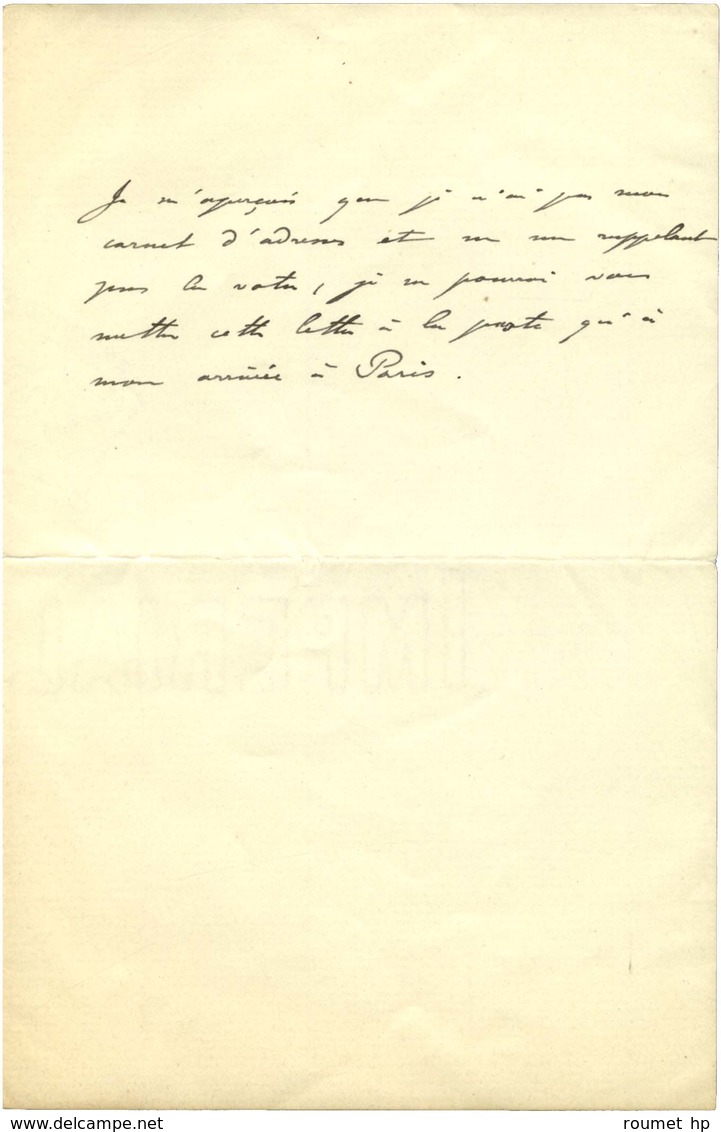 Je m'aperçois que je n'ai pas mon
carnet d'adresses et ne me rappelant
pas la votre, je ne pourrai vous
mettre cette lettre à la poste qu'à
mon arrivée à Paris.
roumet hp